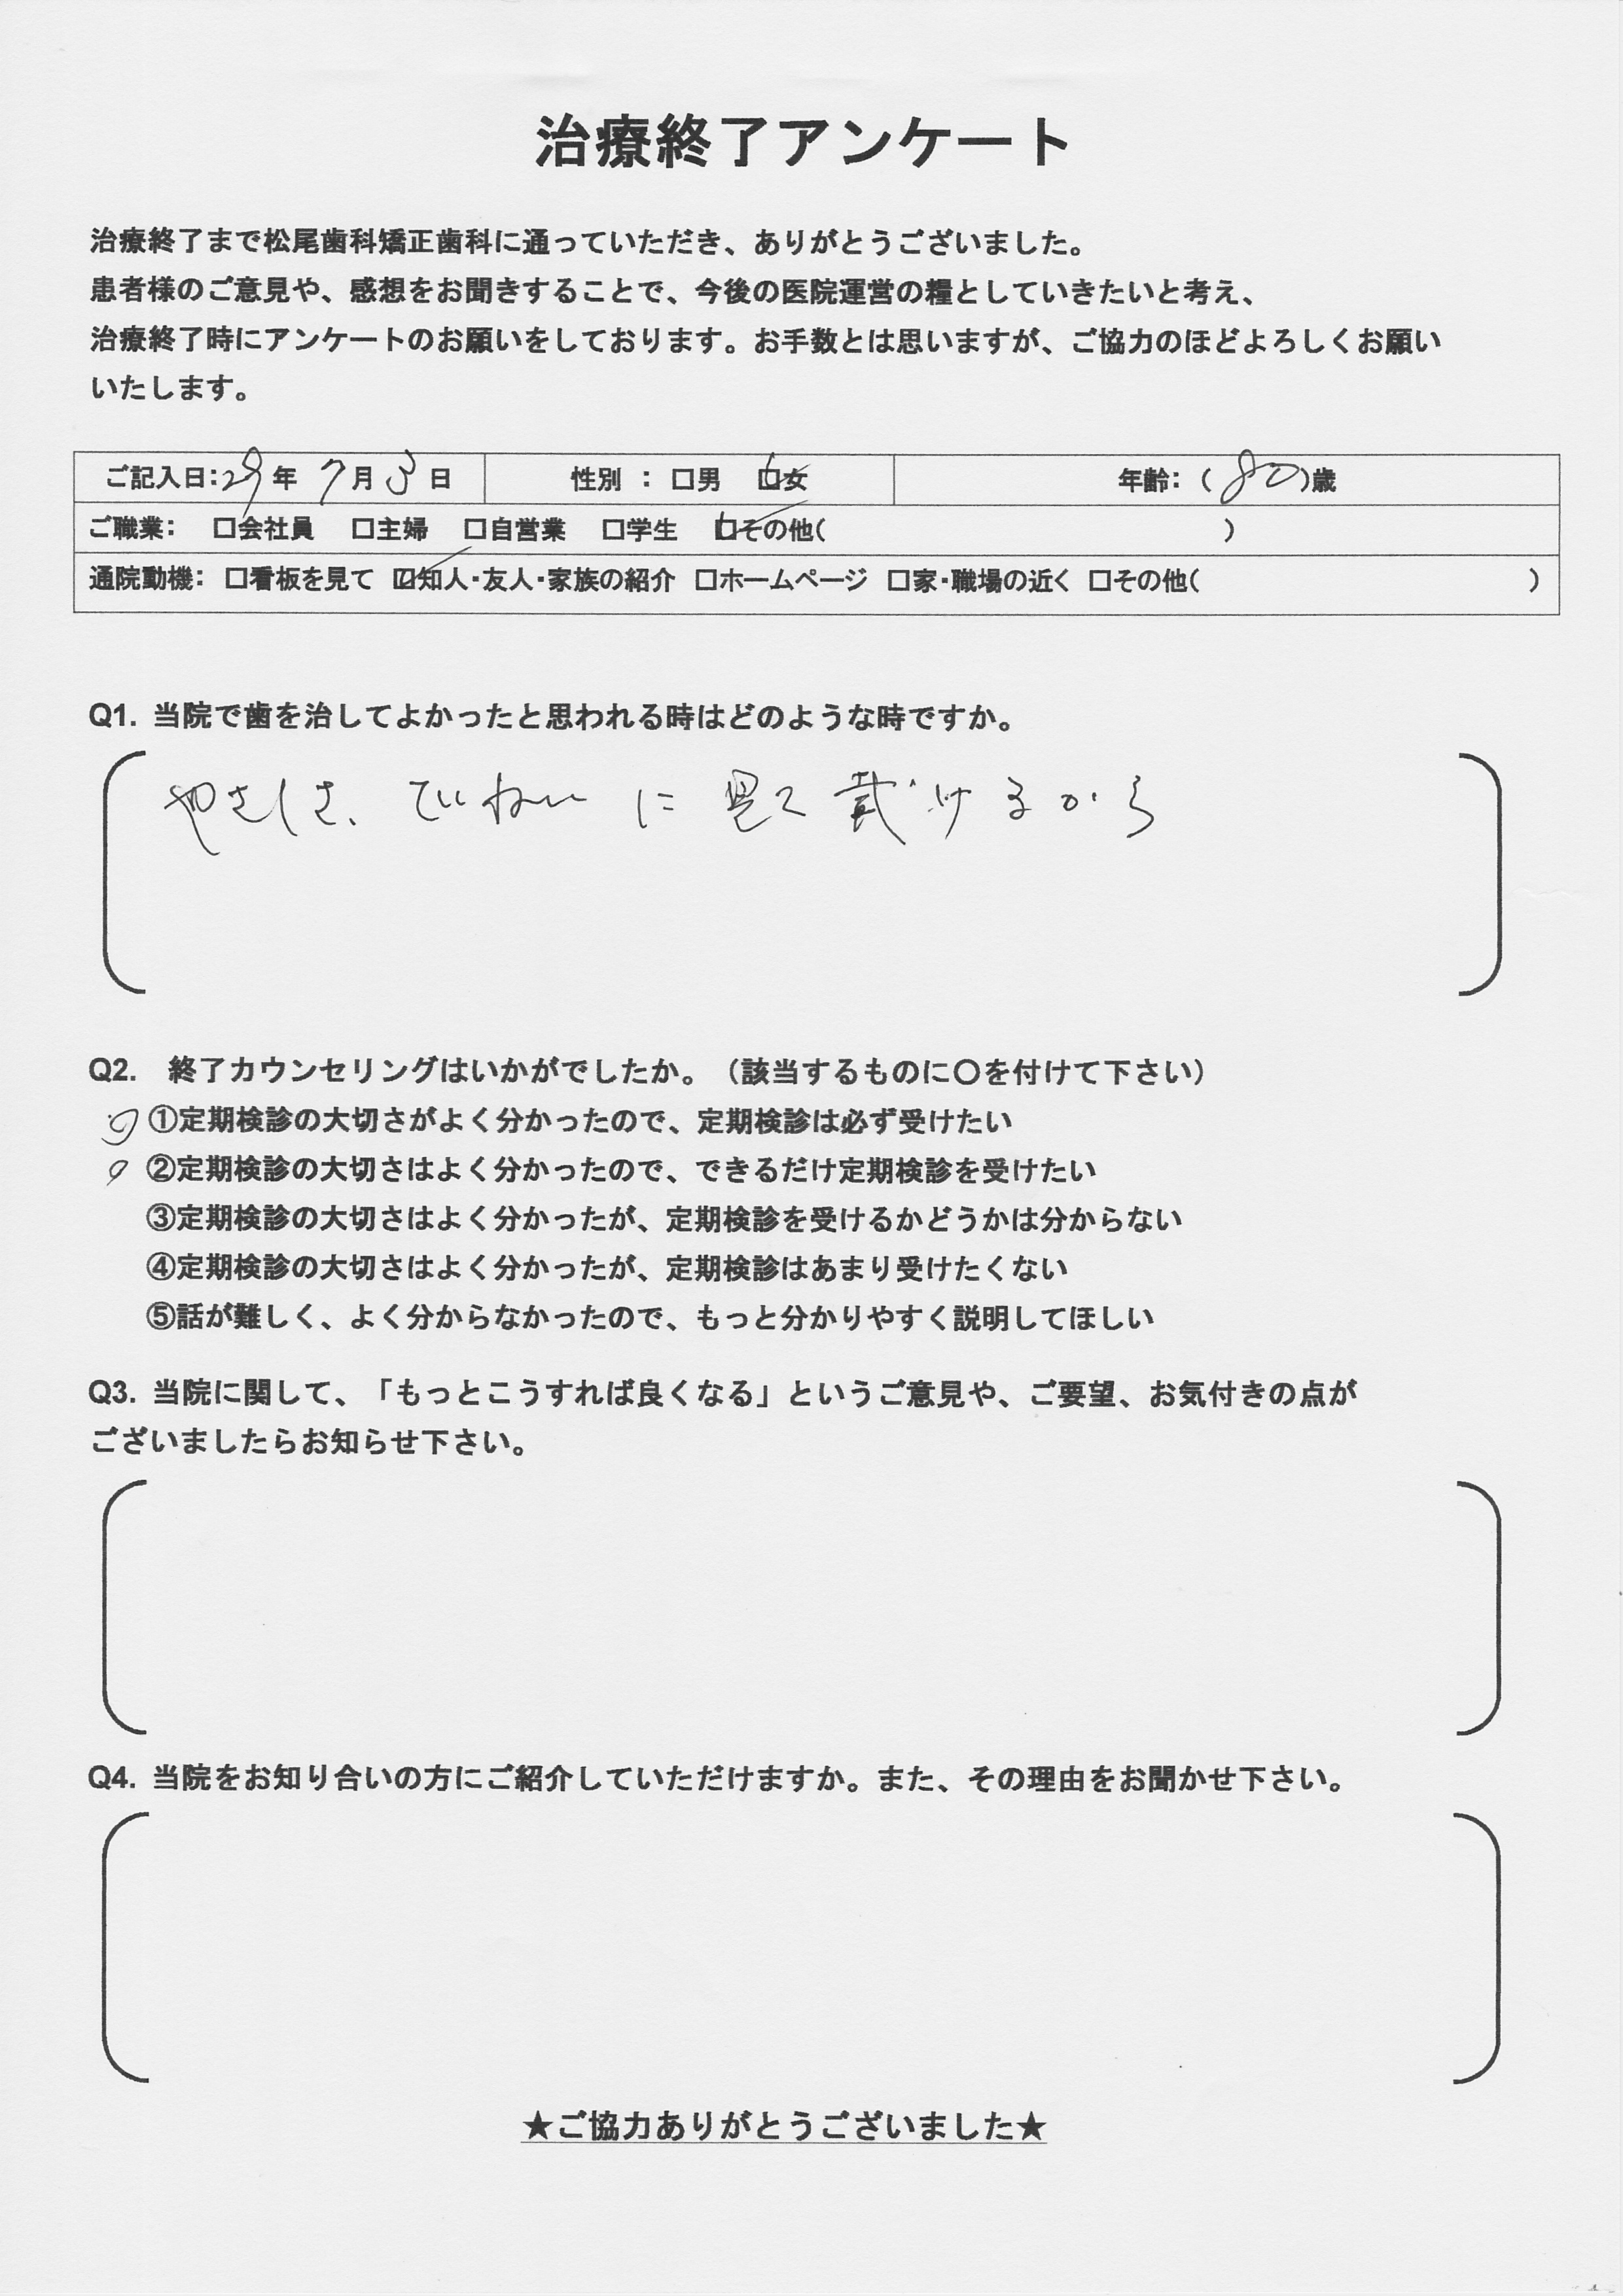 治療終了アンケート
治療終了まで松尾歯科矯正歯科に通っていただき、ありがとうございました。
患者様のご意見や、感想をお聞きすることで、今後の医院運営の糧としていきたいと考え、
治療終了時にアンケートのお願いをしております。お手数とは思いますが、ご協力のほどよろしくお願い
いたします。
ご記入日：29年 7月 3日 性別 ： □男 ☑女 年齢：（80）歳
ご職業： □会社員 □主婦 □自営業 □学生 ☑その他（ ）
通院動機： □看板を見て ☑知人・友人・家族の紹介 □ホームページ □家・職場の近く □その他（ ）
Q1. 当院で歯を治してよかったと思われる時はどのような時ですか。
やさしさ、ていねいに見て戴けるから
Q2. 終了カウンセリングはいかがでしたか。（該当するものに〇を付けて下さい）
〇 ①定期検診の大切さがよく分かったので、定期検診は必ず受けたい
〇 ②定期検診の大切さはよく分かったので、できるだけ定期検診を受けたい
③定期検診の大切さはよく分かったが、定期検診を受けるかどうかは分からない
④定期検診の大切さはよく分かったが、定期検診はあまり受けたくない
⑤話が難しく、よく分からなかったので、もっと分かりやすく説明してほしい
Q3. 当院に関して、「もっとこうすれば良くなる」というご意見や、ご要望、お気付きの点が
ございましたらお知らせ下さい。
Q4. 当院をお知り合いの方にご紹介していただけますか。また、その理由をお聞かせ下さい。
★ご協力ありがとうございました★